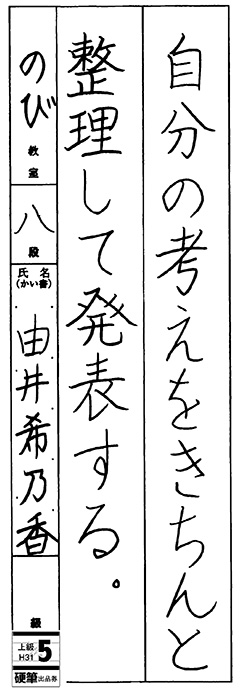 自分の考えをきちんと
整理して発表する。
のび教室
八段
氏名(かい書)
由井希乃香
級
上級 H31 5
硬筆出品券